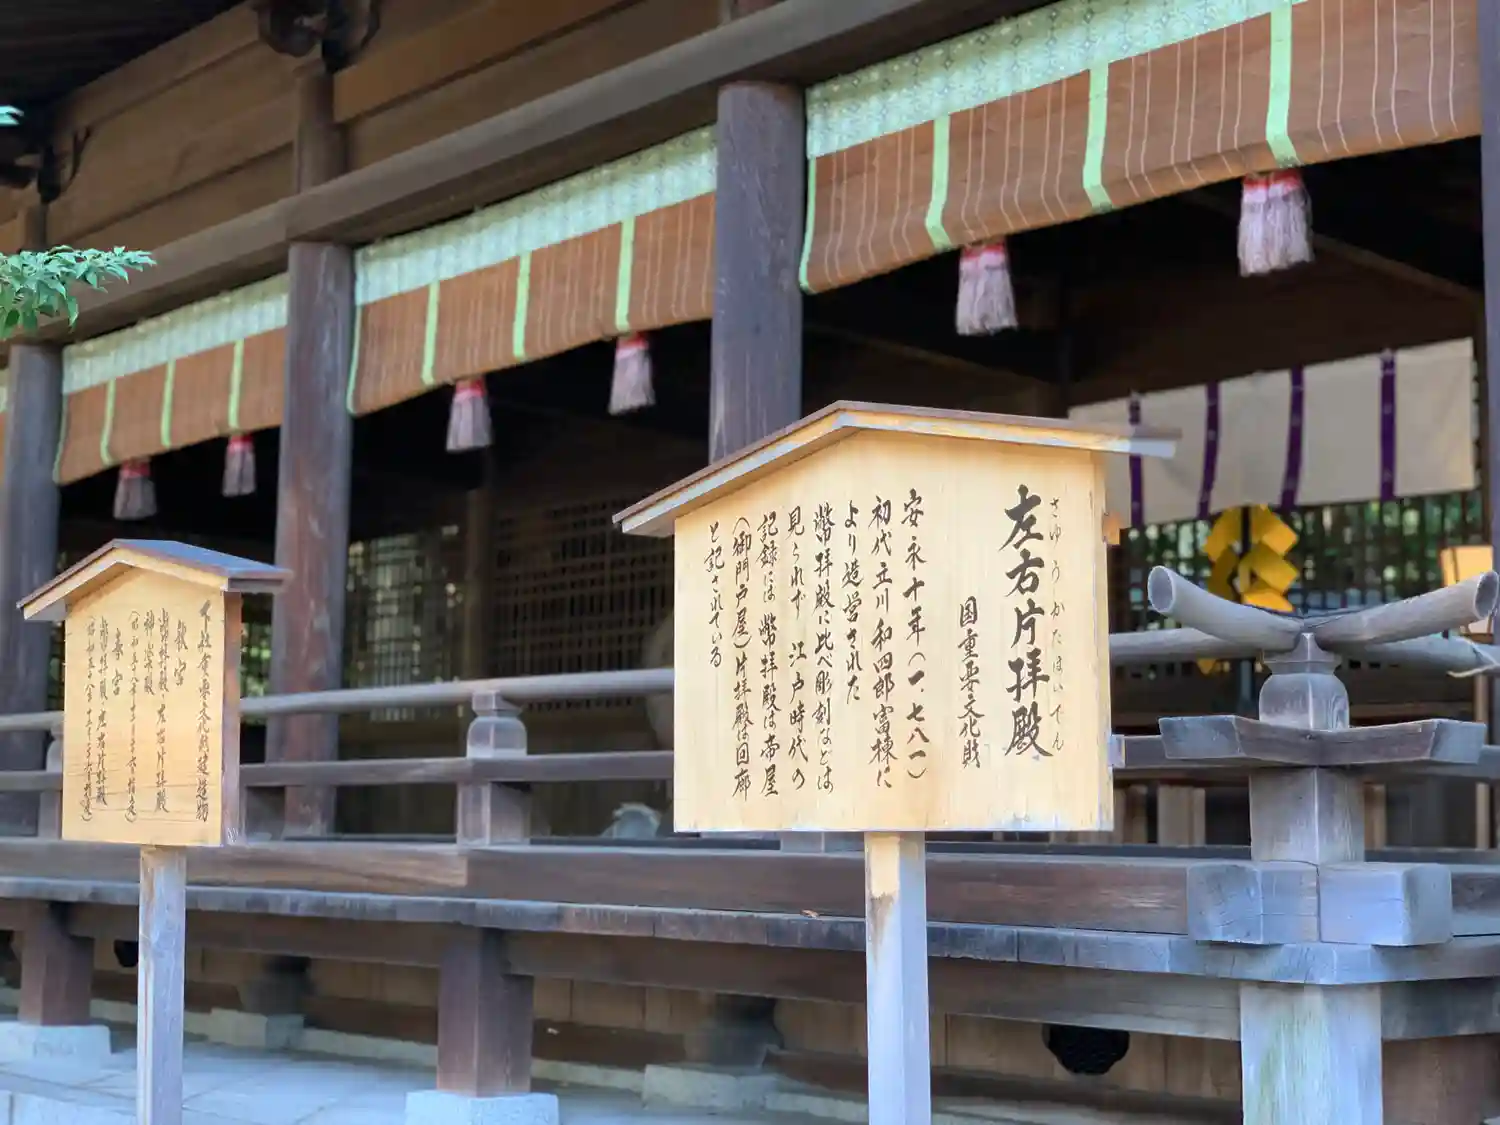 左右片拝殿
さゆうかたはいでん
国重要文化財
安永十年(一、七八一)
初代立川和四郎富棟に
より造営された
幣拝殿に比べ彫刻などは
見られず 江戸時代の
記録には幣拝殿は帝屋
(御門戸屋)片拝殿は回廊
と記されている
下社
秋宮
幣拝殿・左右片拝殿
神楽殿
春宮
幣拝殿・左右片拝殿